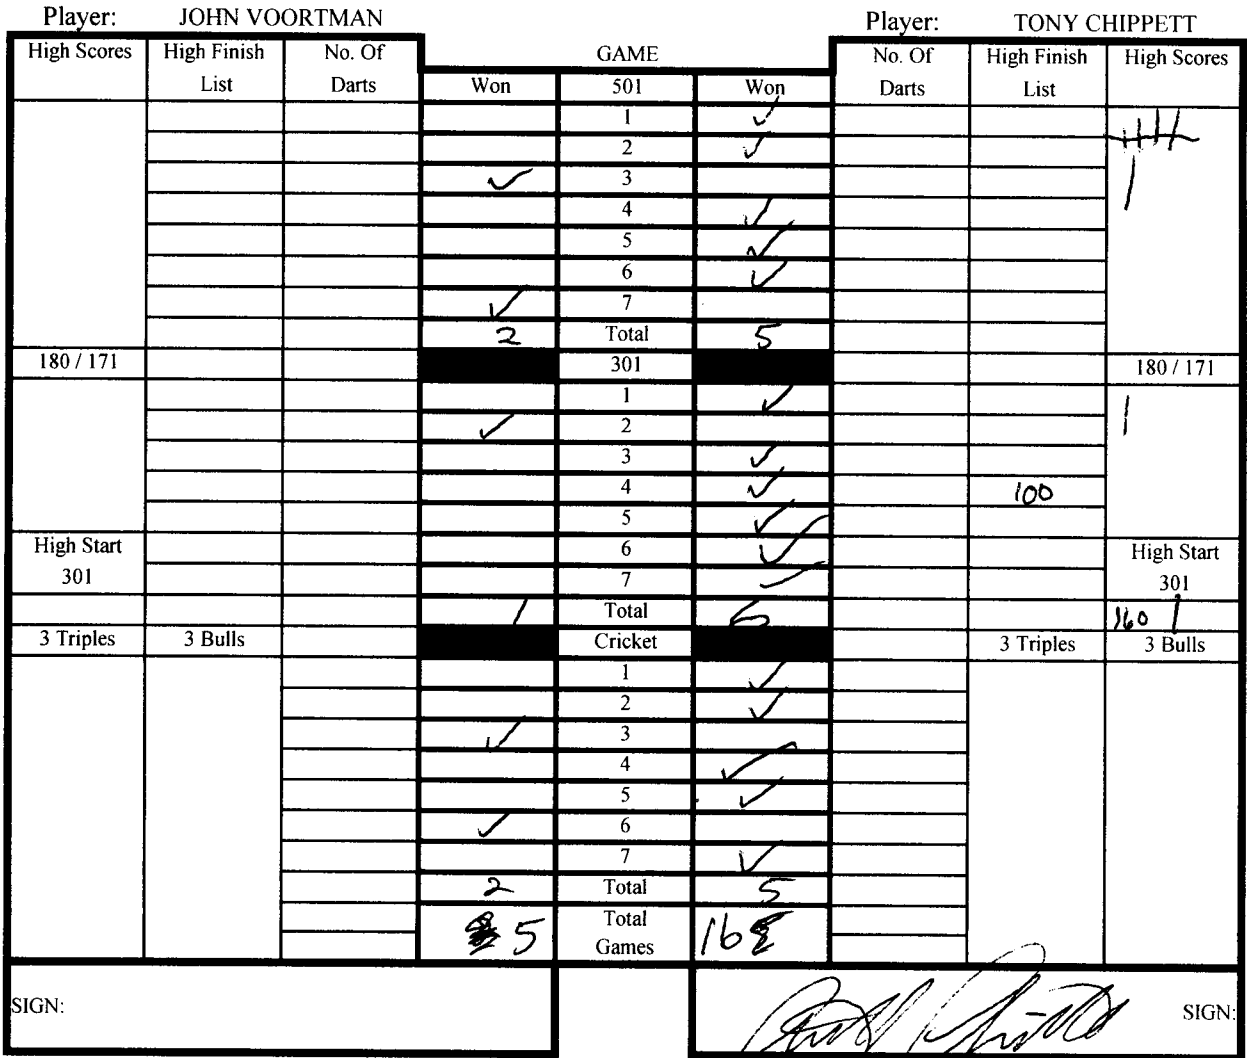 Player: JOHN VOORTMAN Player: TONY CHIPPETT
High Scores High Finish List No. Of Darts GAME No. Of Darts High Finish List High Scores
Won 501 Won
1 ✓
2 ✓
✓ 3
4 ✓
5 ✓
6 ✓
✓ 7
2 Total 5
180 / 171 301 180 / 171
1 ✓
✓ 2
3 ✓
4 ✓ 100
5 ✓
High Start 301 6 ✓ High Start 301
7 ✓
1 Total 6 160
3 Triples 3 Bulls Cricket 3 Triples 3 Bulls
1 ✓
2 ✓
✓ 3
4 ✓
5 ✓
✓ 6
7 ✓
2 Total 5
5 Total Games 16
SIGN: SIGN: